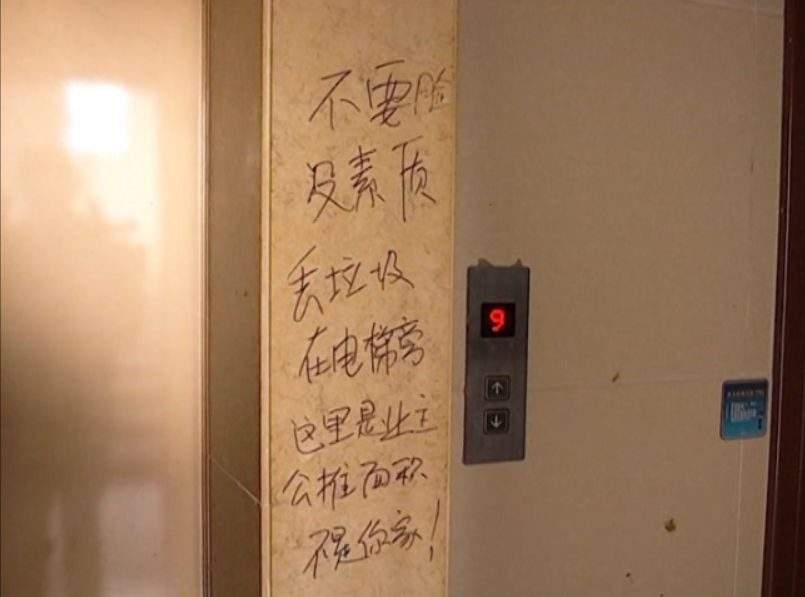 不要脸
没素质
丢垃圾
在电梯旁
这里是业主
公摊面积
不是你家！
9